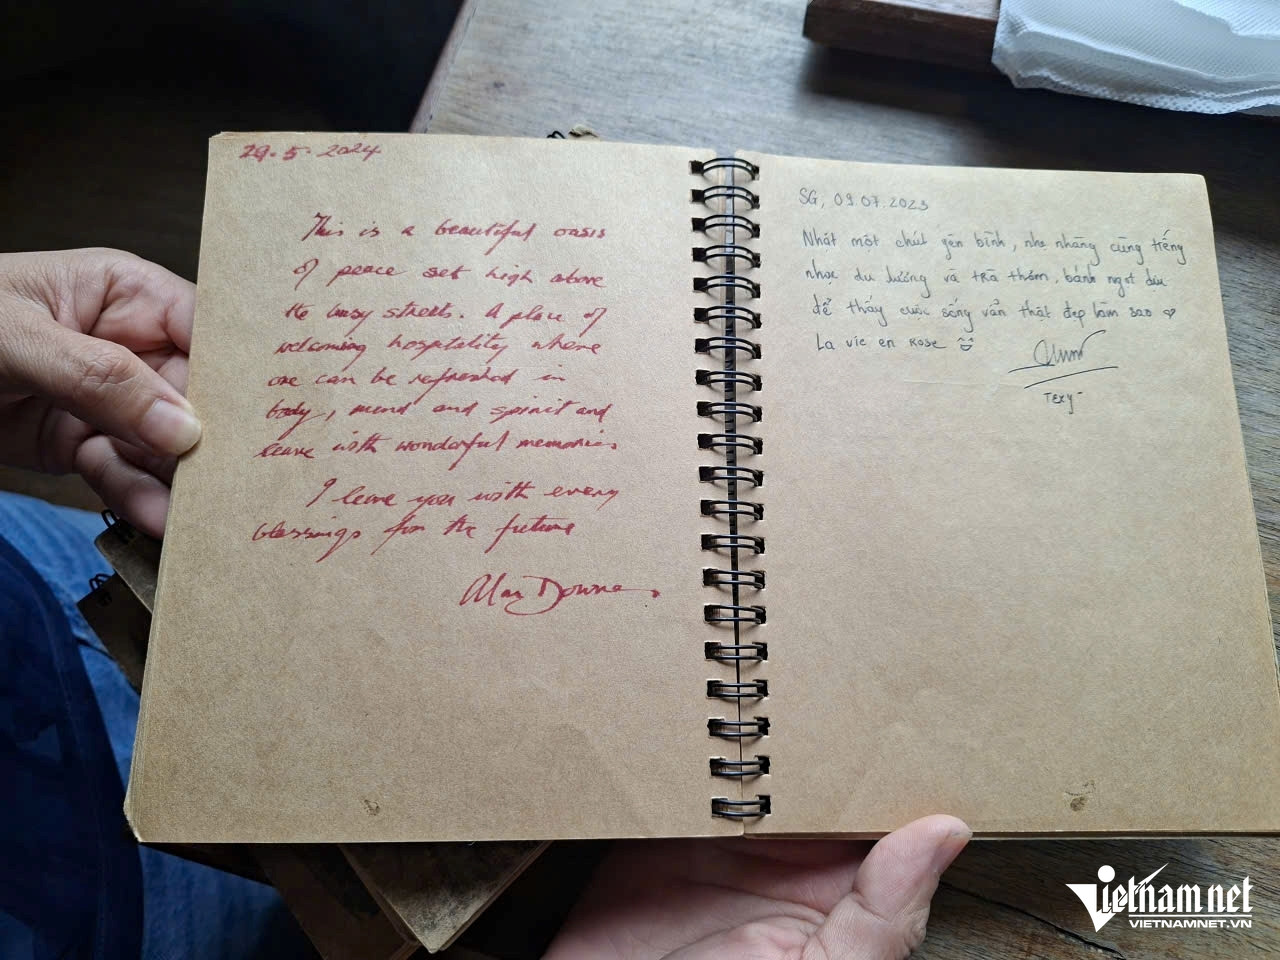 29.5.2024
This is a beautiful oasis
of peace set high above
the busy streets. A place of
welcoming hospitality where
one can be refreshed in
body, mind and spirit and
leave with wonderful memories.
I leave you with every
blessings for the future
Alan Downe
SG, 09.07.2023
Nhặt một chút yên bình, nhẹ nhàng cùng tiếng
nhạc du dương và trà thơm, bánh ngọt dịu
để thấy cuộc sống vẫn thật đẹp làm sao ♡
La vie en Rose
Texy
Vietnamnet
VIETNAMNET.VN